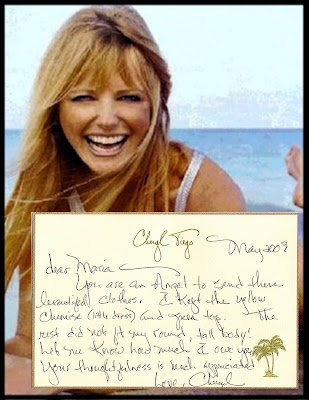 Cheryl Tiegs
May 2009
dear Maria
You are an Angel to send these
beautiful clothes. I kept the yellow
Chemise (1st dress) and green top. The
rest did not fit my round, tall body!
Let me know how much I owe you.
Your thoughtfulness is much appreciated
Love, Cheryl